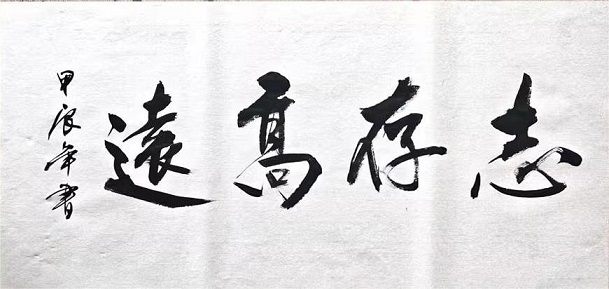 志存高遠
甲辰年書